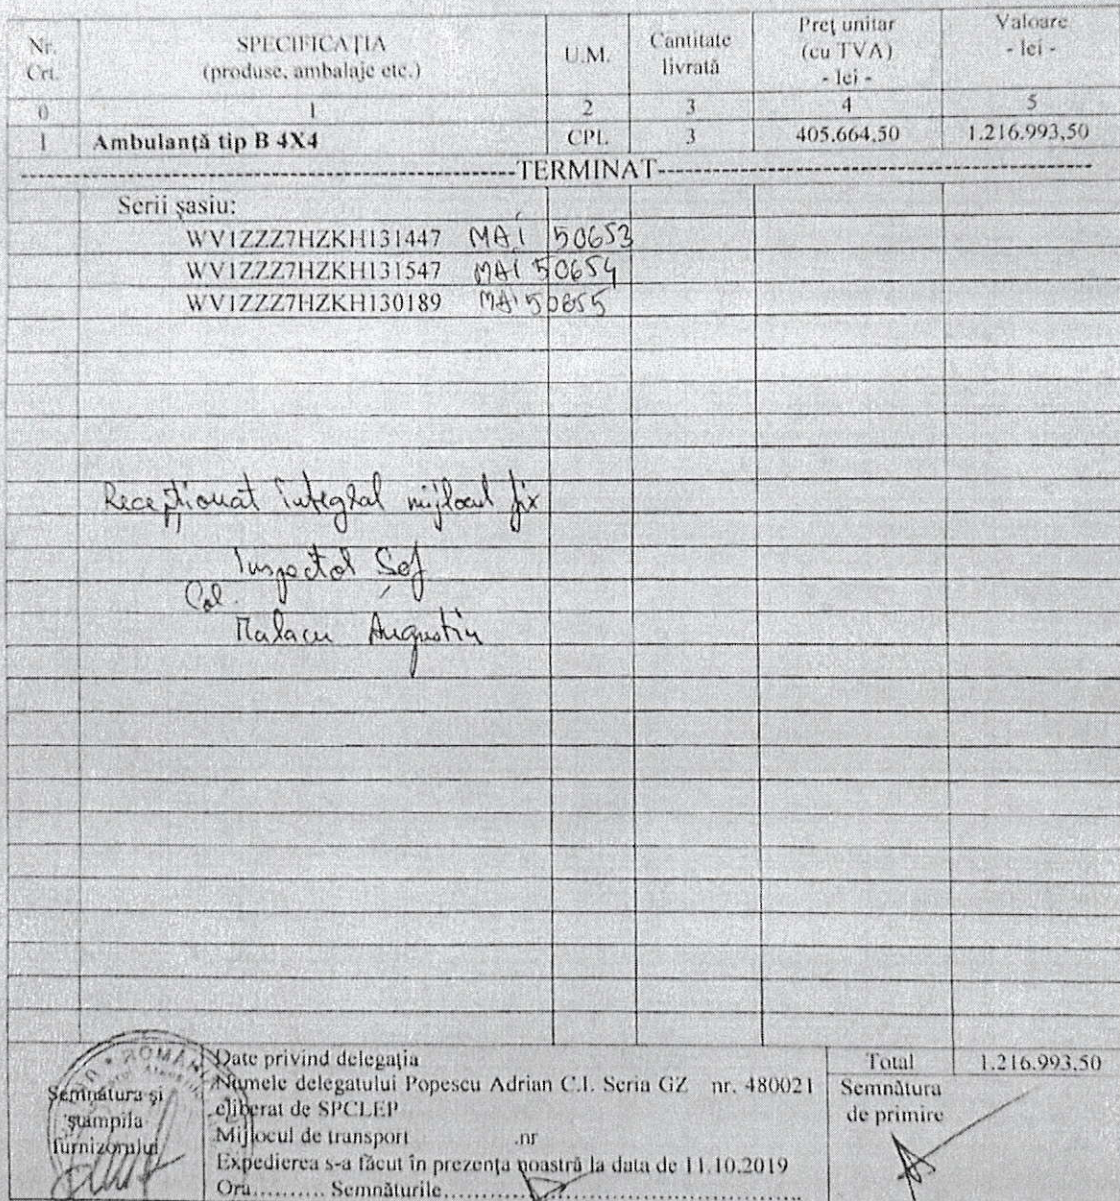 Nr. Crt. SPECIFICAȚIA (produse, ambalaje etc.) U.M. Cantitate livrată Preț unitar (cu TVA) - lei - Valoare - lei -
0 1 2 3 4 5
1 Ambulanță tip B 4X4 CPL 3 405.664,50 1.216.993,50
TERMINAT
Serii șasiu:
WV1ZZZ7HZKH131447 MAI 50653
WV1ZZZ7HZKH131547 MAI 50654
WV1ZZZ7HZKH130189 MAI 50655
Recepționat integral mijlocul fix
Inspector Șef
Col.
Malacu Augustin
Semnătura și
ștampila
furnizorului
Date privind delegația
Numele delegatului Popescu Adrian C.I. Seria GZ nr. 480021
eliberat de SPCLEP
Mijlocul de transport .nr
Expedierea s-a făcut în prezența noastră la data de 11.10.2019
Ora.......... Semnăturile
Total 1.216.993,50
Semnătura
de primire